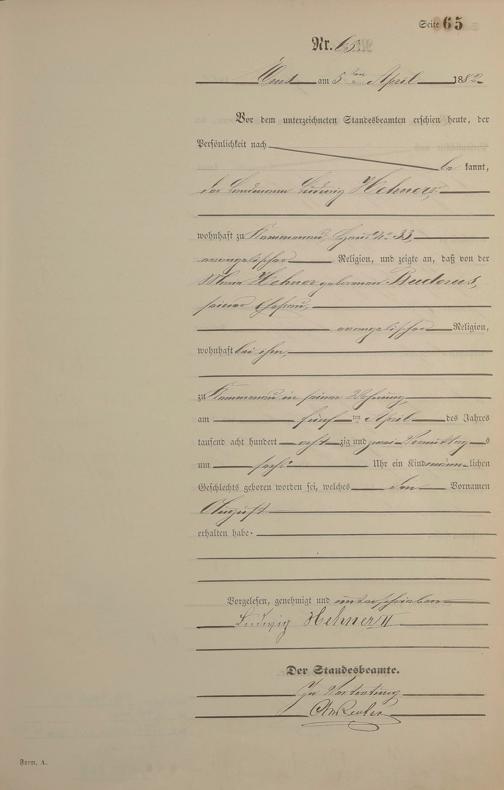 Seite 65
Nr. 65
Ems am 5ten April 1882
Vor dem unterzeichneten Standesbeamten erschien heute, der
Persönlichkeit nach
bekannt,
der Landmann Ludwig Hehner,
wohnhaft zu Kemmenau, Haus No 33,
evangelischer Religion, und zeigte an, daß von der
Hehner geborenen Buderus,
seiner Ehefrau,
evangelischer Religion,
wohnhaft bei ihm,
zu Kemmenau in seiner Wohnung,
am fünften April des Jahres
tausend acht hundert achtzig und zwei Vormittags
um sechs Uhr ein Kind männlichen
Geschlechts geboren worden sei, welches den Vornamen
August
erhalten habe.
Vorgelesen, genehmigt und unterschrieben
Ludwig Hehner II
Der Standesbeamte.
In Vertretung
Form. A.